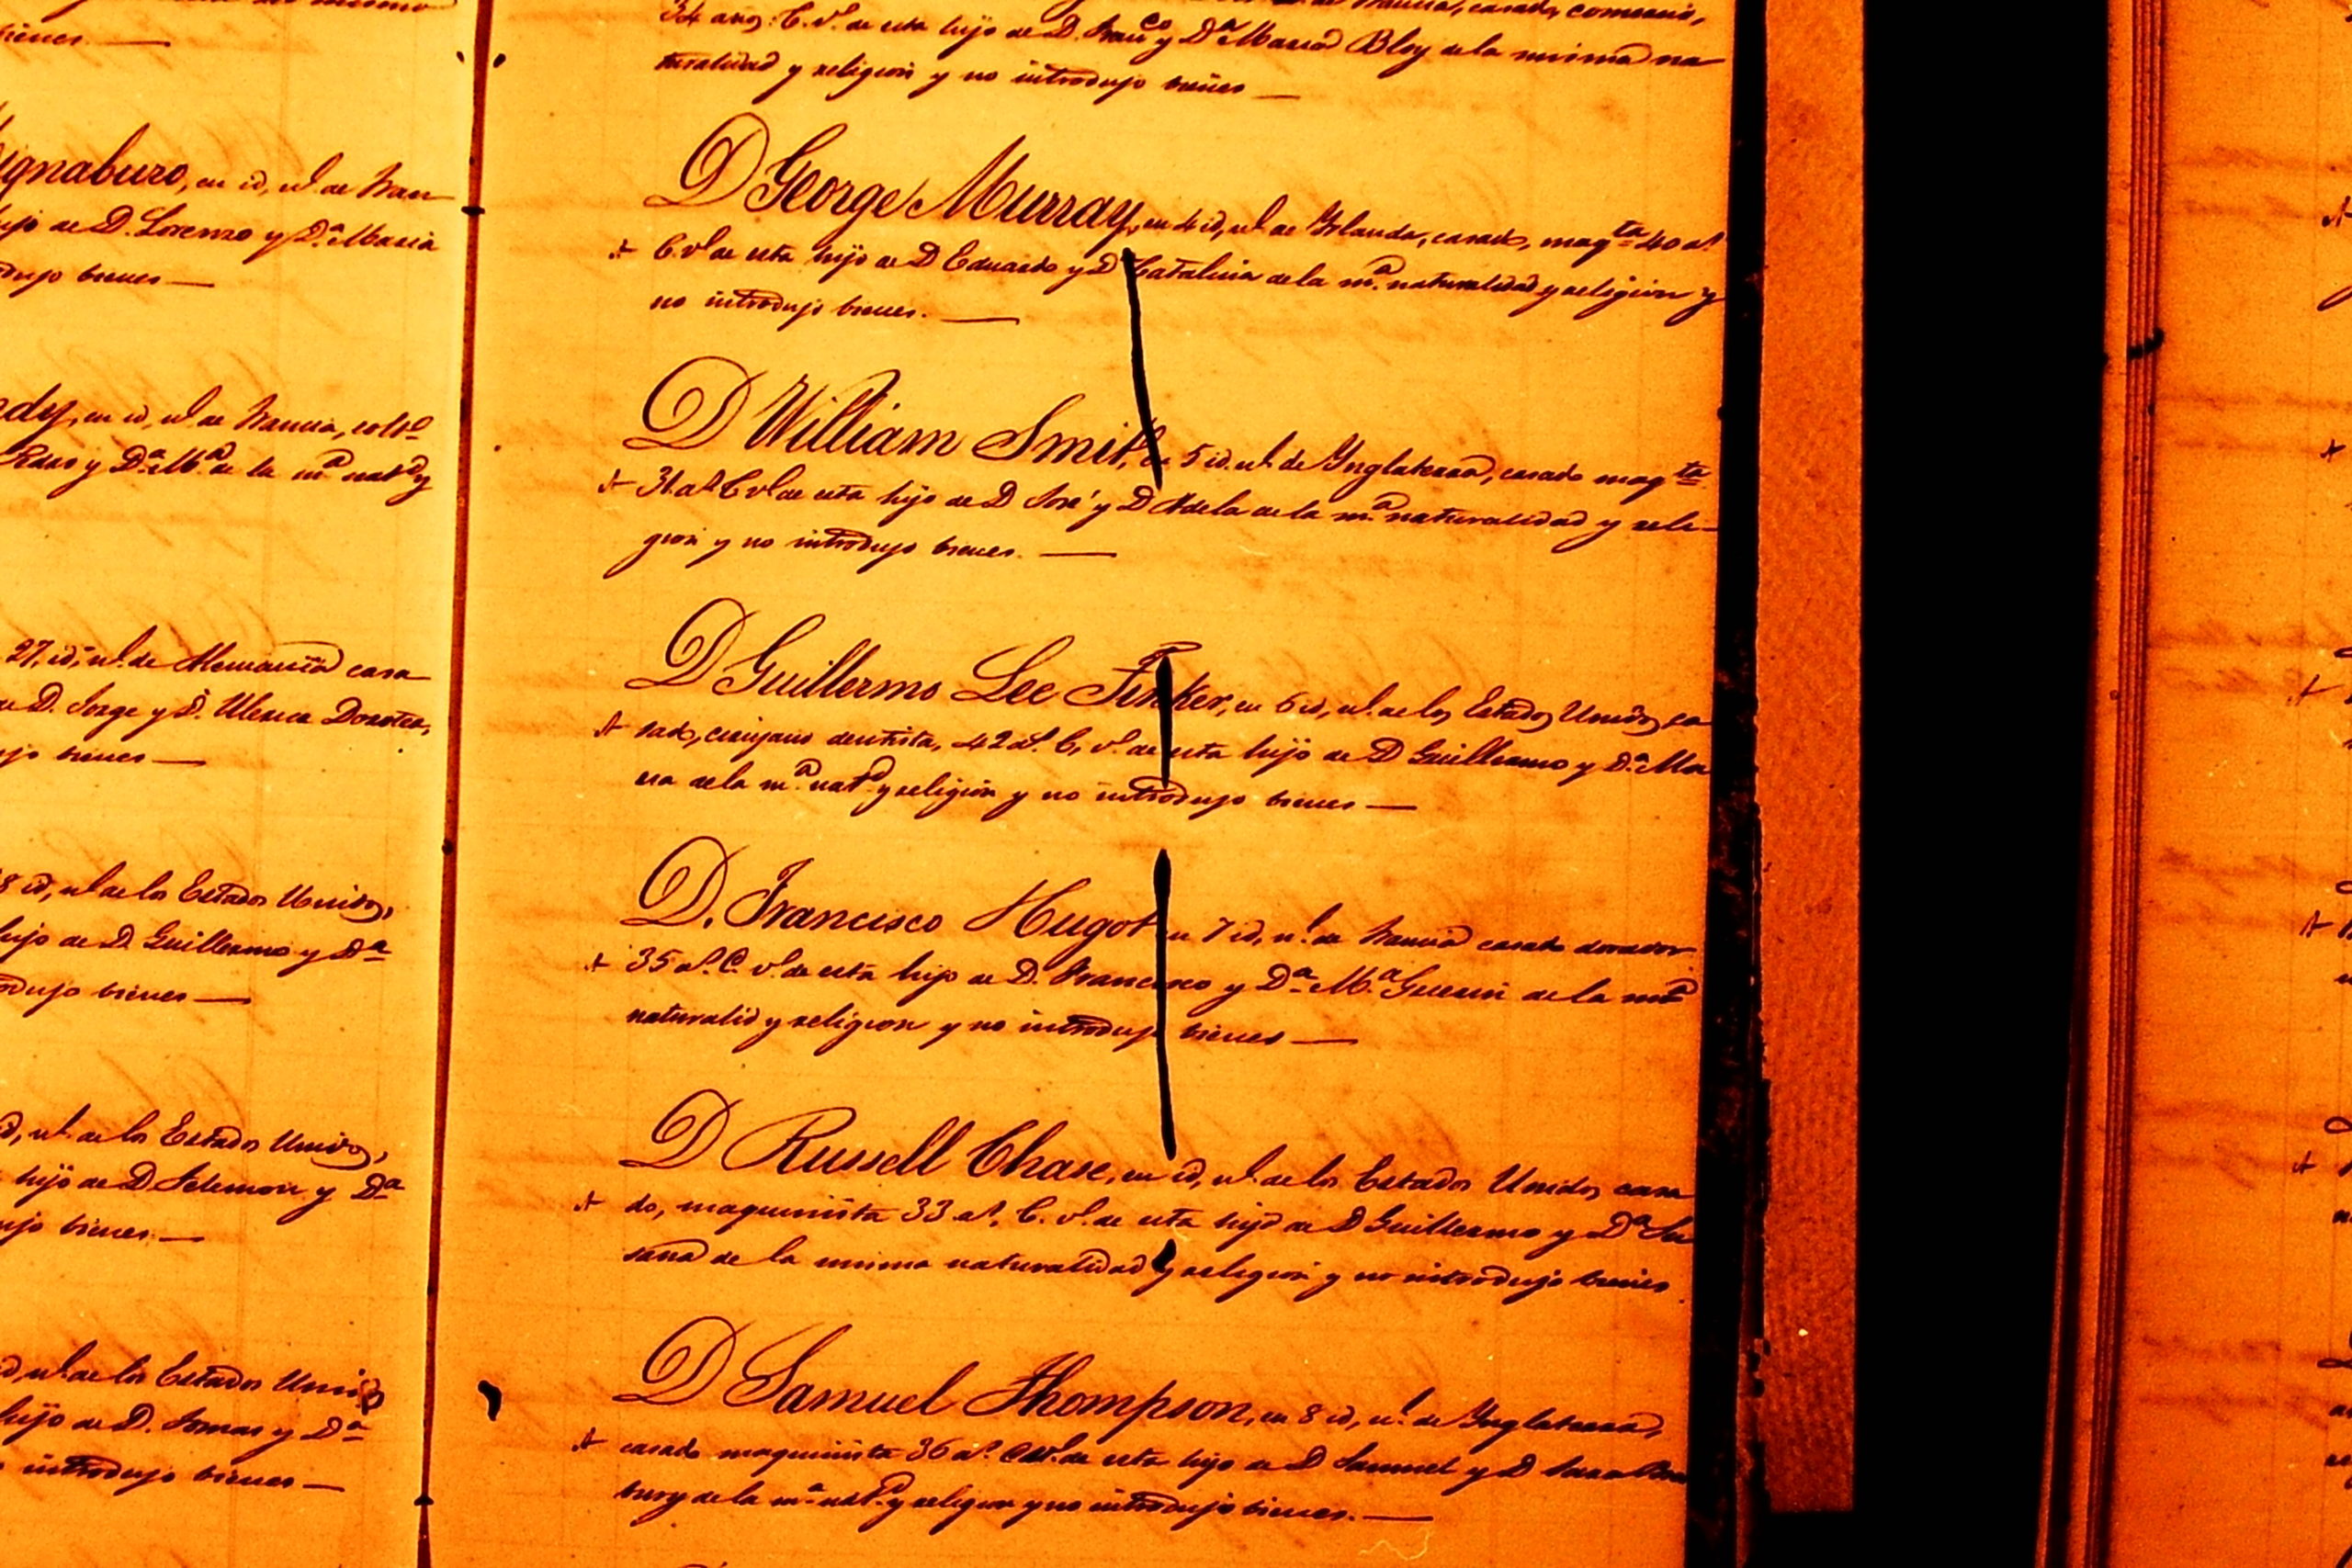 bienes.
ignaburo, en id, nl. de Fran
hijo de D. Lorenzo y Da. Maria
dujo bienes
dy, en id, nl. de Francia, colto
y Da. Ma. de la ma. natd. y
27, id, nl. de Alemania casa
de D. Jorge y D. Dorotea,
bienes
8 id, nl. de los Estados Unidos,
hijo de D. Guillermo y Da
odujo bienes
id, nl. de los Estados Unidos,
hijo de D. y Da
ujo bienes.
id, nl. de los Estados Unidos
hijo de D. Tomas y Da
introdujo bienes
de Francia, casado, comercio,
34 años: C. vo. de esta hijo de D. Franco y Da. Maria Bloy de la misma na
turalidad y religion y no introdujo bienes
D George Murray, en 4 id, nl. de Yrlanda, casado, maqta 40 as.
C. vo. de esta hijo de D Eduardo y D Catalina de la ma. naturalidad y religion y
no introdujo bienes.
D William Smit, en 5 id. nl. de Ynglaterra, casado maqta
31. as. C vo. de esta hijo de D José y D Adela de la ma. naturalidad y reli-
gion y no introdujo bienes.
D Guillermo Lee Finker, en 6 id, nl. de los Estados Unidos, ca
sado, cirujano dentista, 42 as. C. vo. de esta hijo de D Guillermo y Da. Ma
ria de la ma. natd. y religion y no introdujo bienes
D. Francisco Hugot en 7 id, nl. de Francia casado dorador
35 as. C. vo. de esta hijo de D. Francisco y Da. Ma. Guerin de la ma
naturalid y religion y no introdujo bienes
D Russell Chase, en id, nl. de los Estados Unidos casa
do, maquinista 33 as. C. vo. de esta hijo de D Guillermo y Da Su
sana de la misma naturalidad y religion y no introdujo bienes
D Samuel Thompson, en 8 id, nl. de Ynglaterra,
casado maquinista 36 as. C vo. de esta hijo de D Samuel y D Sara
bury de la ma. natd. y religion y no introdujo bienes.